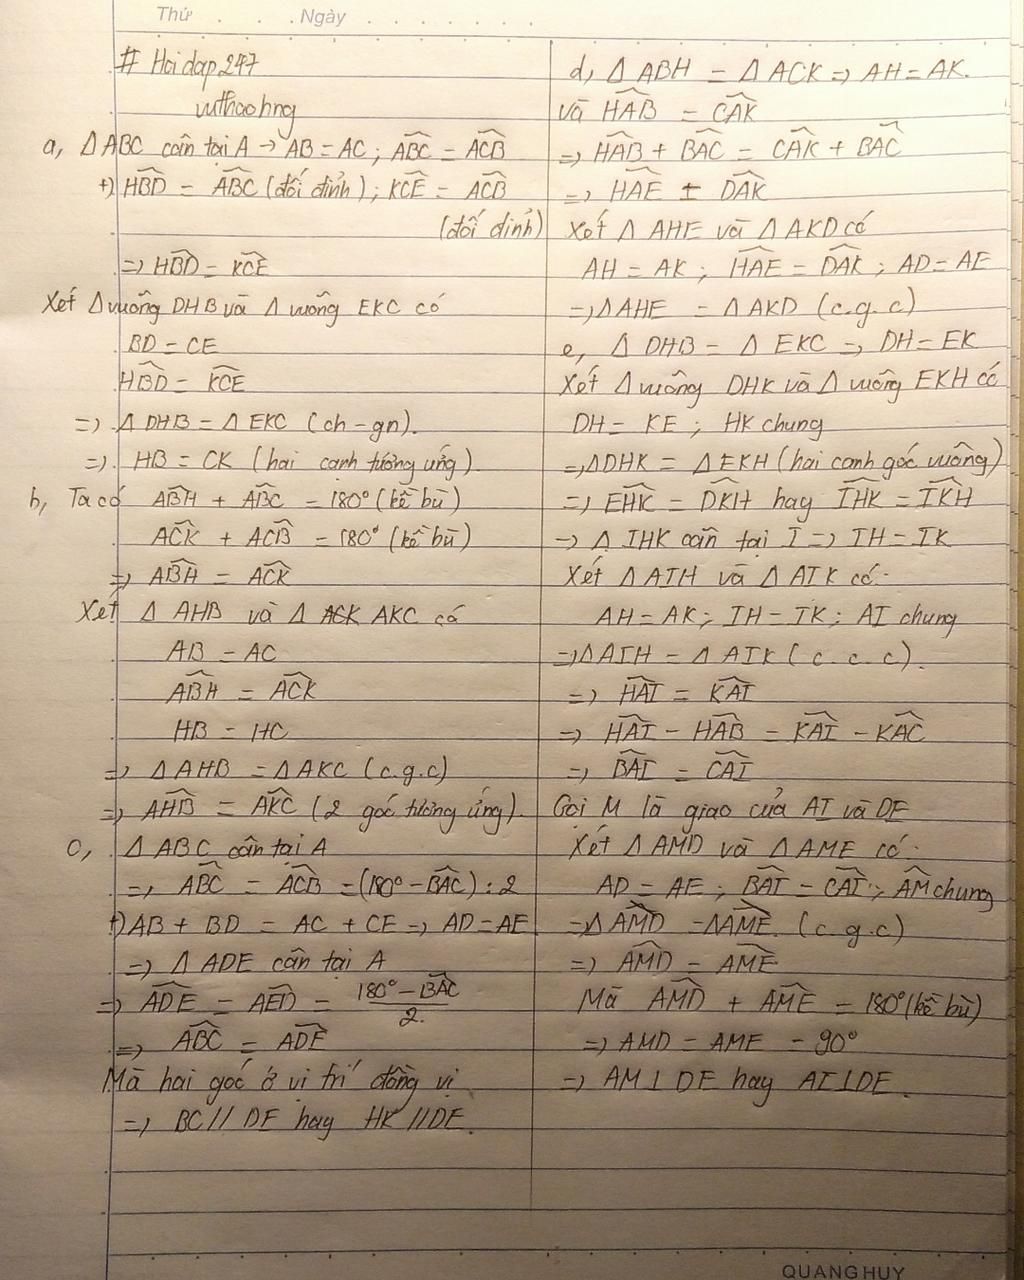 Thứ . . . Ngày . . . . . . . .
# Hoidap247
vuthaohng
a, Δ ABC cân tại A → AB = AC ; \widehat{ABC} = \widehat{ACB}
+) \widehat{HBD} = \widehat{ABC} (đối đỉnh) ; \widehat{KCE} = \widehat{ACB}
(đối đỉnh)
=> \widehat{HBD} = \widehat{KCE}
Xét Δ vuông DHB và Δ vuông EKC có
BD = CE
\widehat{HBD} = \widehat{KCE}
=> Δ DHB = Δ EKC (ch - gn).
=> HB = CK (hai cạnh tương ứng)
b, Ta có \widehat{ABH} + \widehat{ABC} = 180° (kề bù)
\widehat{ACK} + \widehat{ACB} = 180° (kề bù)
=> \widehat{ABH} = \widehat{ACK}
Xét Δ AHB và Δ AKC có
AB = AC
\widehat{ABH} = \widehat{ACK}
HB = HC
=> Δ AHB = Δ AKC (c.g.c)
=> \widehat{AHB} = \widehat{AKC} (2 góc tương ứng).
c, Δ ABC cân tại A
=> \widehat{ABC} = \widehat{ACB} = (180° - \widehat{BAC}) : 2
+) AB + BD = AC + CE => AD = AE
=> Δ ADE cân tại A
=> \widehat{ADE} = \widehat{AED} = \frac{180° - \widehat{BAC}}{2}
=> \widehat{ABC} = \widehat{ADE}
Mà hai góc ở vị trí đồng vị
=> BC // DE hay HK // DE.
d, Δ ABH = Δ ACK => AH = AK.
và \widehat{HAB} = \widehat{CAK}
=> \widehat{HAB} + \widehat{BAC} = \widehat{CAK} + \widehat{BAC}
=> \widehat{HAE} = \widehat{DAK}
Xét Δ AHE và Δ AKD có
AH = AK ; \widehat{HAE} = \widehat{DAK} ; AD = AE
=> Δ AHE = Δ AKD (c.g.c)
e, Δ DHB = Δ EKC => DH = EK
Xét Δ vuông DHK và Δ vuông EKH có
DH = KE ; HK chung
=> Δ DHK = Δ EKH (hai cạnh góc vuông)
=> \widehat{EHK} = \widehat{DKH} hay \widehat{IHK} = \widehat{IKH}
=> Δ IHK cân tại I => IH = IK
Xét Δ AIH và Δ AIK có.
AH = AK ; IH = IK ; AI chung
=> Δ AIH = Δ AIK (c.c.c).
=> \widehat{HAI} = \widehat{KAI}
=> \widehat{HAI} - \widehat{HAB} = \widehat{KAI} - \widehat{KAC}
=> \widehat{BAI} = \widehat{CAI}
Gọi M là giao của AI và DE
Xét Δ AMD và Δ AME có.
AD = AE ; \widehat{BAI} = \widehat{CAI} ; \widehat{AM} chung
=> Δ AMD = Δ AME. (c.g.c)
=> \widehat{AMD} = \widehat{AME}
Mà \widehat{AMD} + \widehat{AME} = 180° (kề bù)
=> AMD = AME = 90°
=> AM ⊥ DE hay AI ⊥ DE.
QUANG HUY